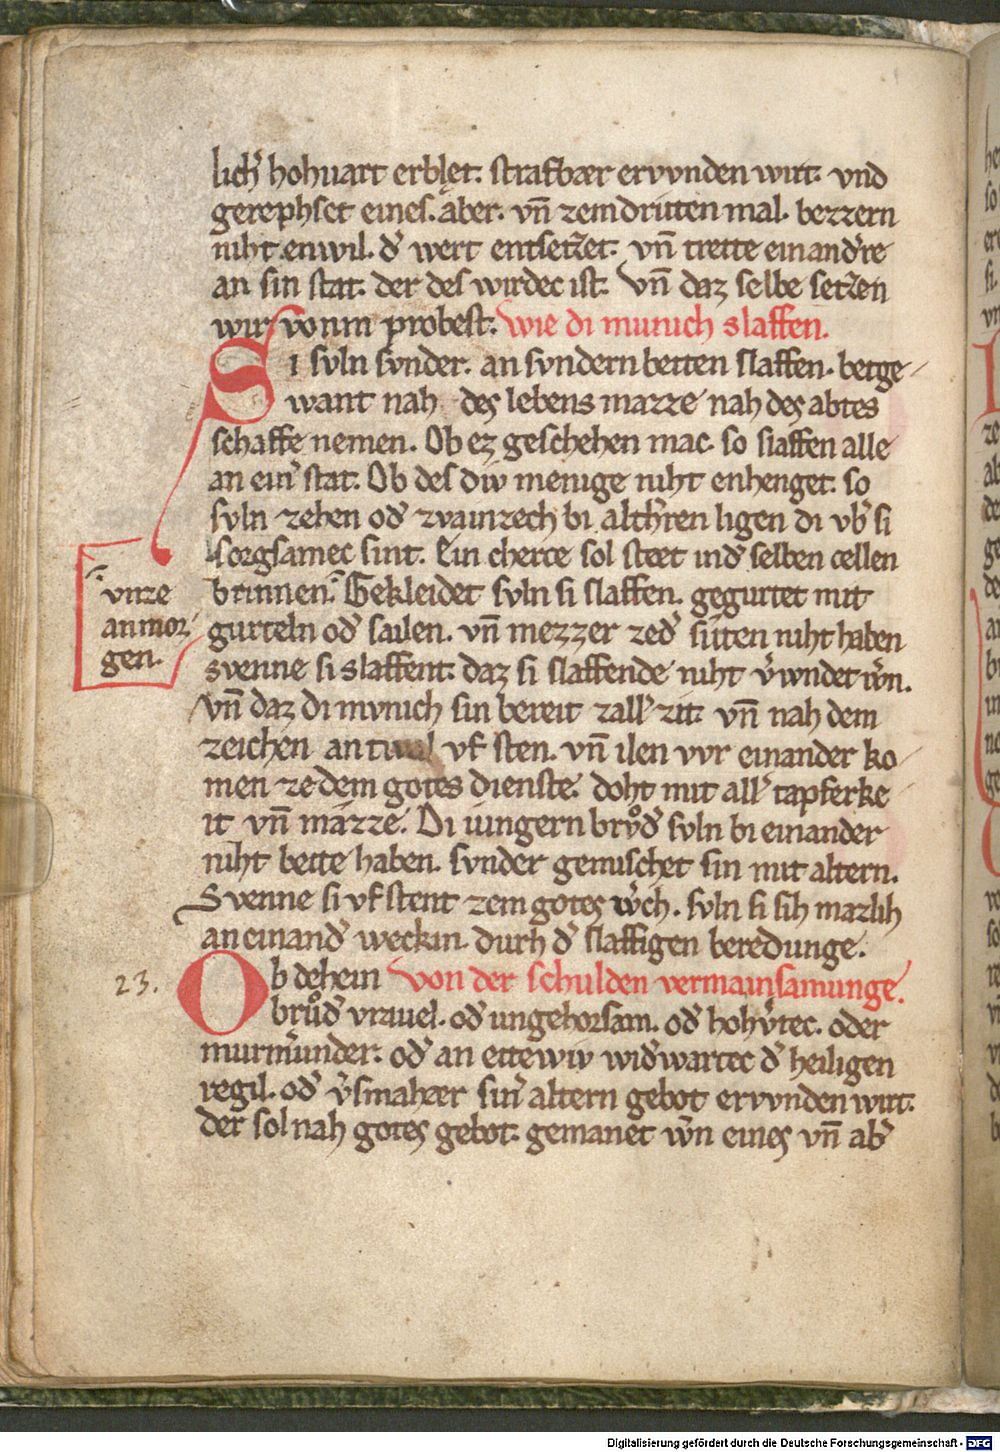 lich͛ hohuart erblęt. strafbær ervvnden wirt. vnd
gerephset eines. aber. vn̄ zem dritten mal. bezzern
niht enwil. d͛ wert entsetzet. vn̄ trette ein and͛re
an sin stat. der des wirdec ist. Vn̄ daz selbe setzen
wir vonm probest. Wie di munich slaffen.
SI svln svnder. an svndern betten slaffen. betge-
want nah des lebens mazze nah des abtes
schaffe nemen. Ob ez geschehen mac. so slaffen alle
an ein͛ stat. Ob des div menige niht enhenget. so
svln zehen od͛ zvainzech bi alth͛ren ligen di vb͛ si
sorgsamec sint. Ein cherce sol stæt in d͛ selben cellen
brinnen. Gekleidet svln si slaffen. gegurtet mit
vnze
an mor
gen.
gurteln od͛ sailen. vn̄ mezzer ze d͛ siten niht haben
svenne si slaffent. daz si slaffende niht v͛wndet w͛n.
Vn̄ daz di mvnich sin bereit zall͛ zit. vn̄ nah dem
zeichen an twal vf sten. vn̄ ilen vvr einander ko-
men ze dem gotes dienste. doht mit all͛ tapferke
it vn̄ mazze. Di iungern brvͦd͛ svln bi einander
niht bette haben. svnder gemischet sin mit altern.
Svenne si vf stent zem gotes w͛ch. svln si sih mazlih
an einand͛ weckin. durh d͛ slaffigen beredunge.
23.
Ob dehein Von der schulden vermainsamunge.
bruͦd͛ vravel. od͛ ungehorsam. od͛ hohv͛tec. oder
murm͛under. od͛ an ettewiv wid͛wartec d͛ heiligen
regil. od͛ v͛smahær sin͛ altern gebot ervvnden wirt.
der sol nah gotes gebot. gemanet w͛n eines vn̄ ab͛
Digitalisierung gefördert durch die Deutsche Forschungsgemeinschaft - DFG